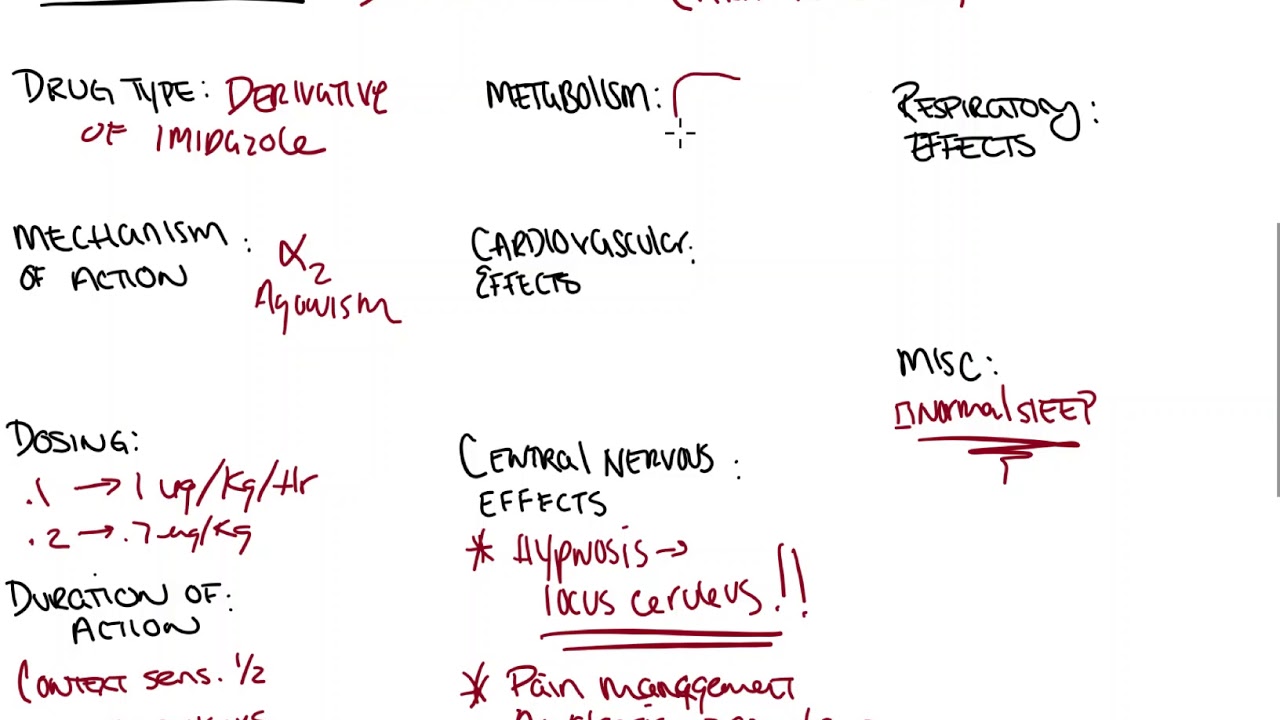 DRUG TYPE: DERIVATIVE
OF IMIDAZOLE
MECHANISM
OF ACTION :
α2
AGONISM
DOSING:
.1 → 1 ug/Kg/Hr
.2 → .7 ug/Kg
DURATION OF:
ACTION
CONTEXT SENS. 1/2
METABOLISM:
CARDIOVASCULAR:
EFFECTS
CENTRAL NERVOUS :
EFFECTS
* HYPNOSIS →
LOCUS CERULEUS!!
* PAIN MANAGEMENT
RESPIRATORY:
EFFECTS
MISC:
NORMAL SLEEP